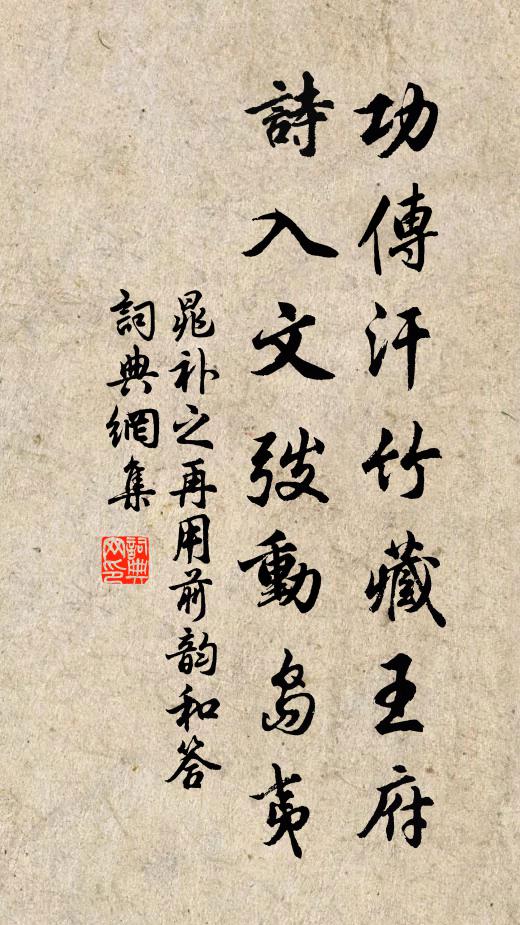 功傳汗竹藏王府
詩入文弢動島夷
晁补之再用前韵和答
詞典網集
詞典网印